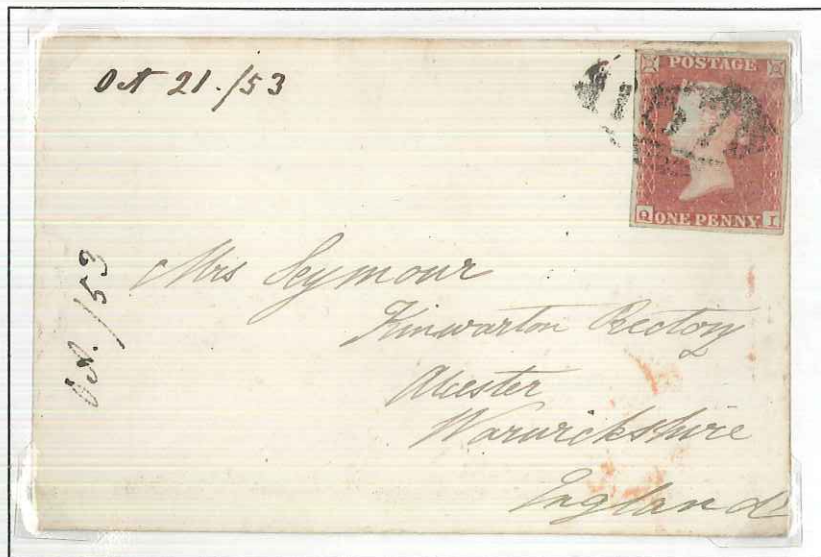 Oct 21./53
POSTAGE
Q ONE PENNY I
Oct./53
Mrs Seymour
Kinwarton Rectory
Alcester
Warwickshire
England